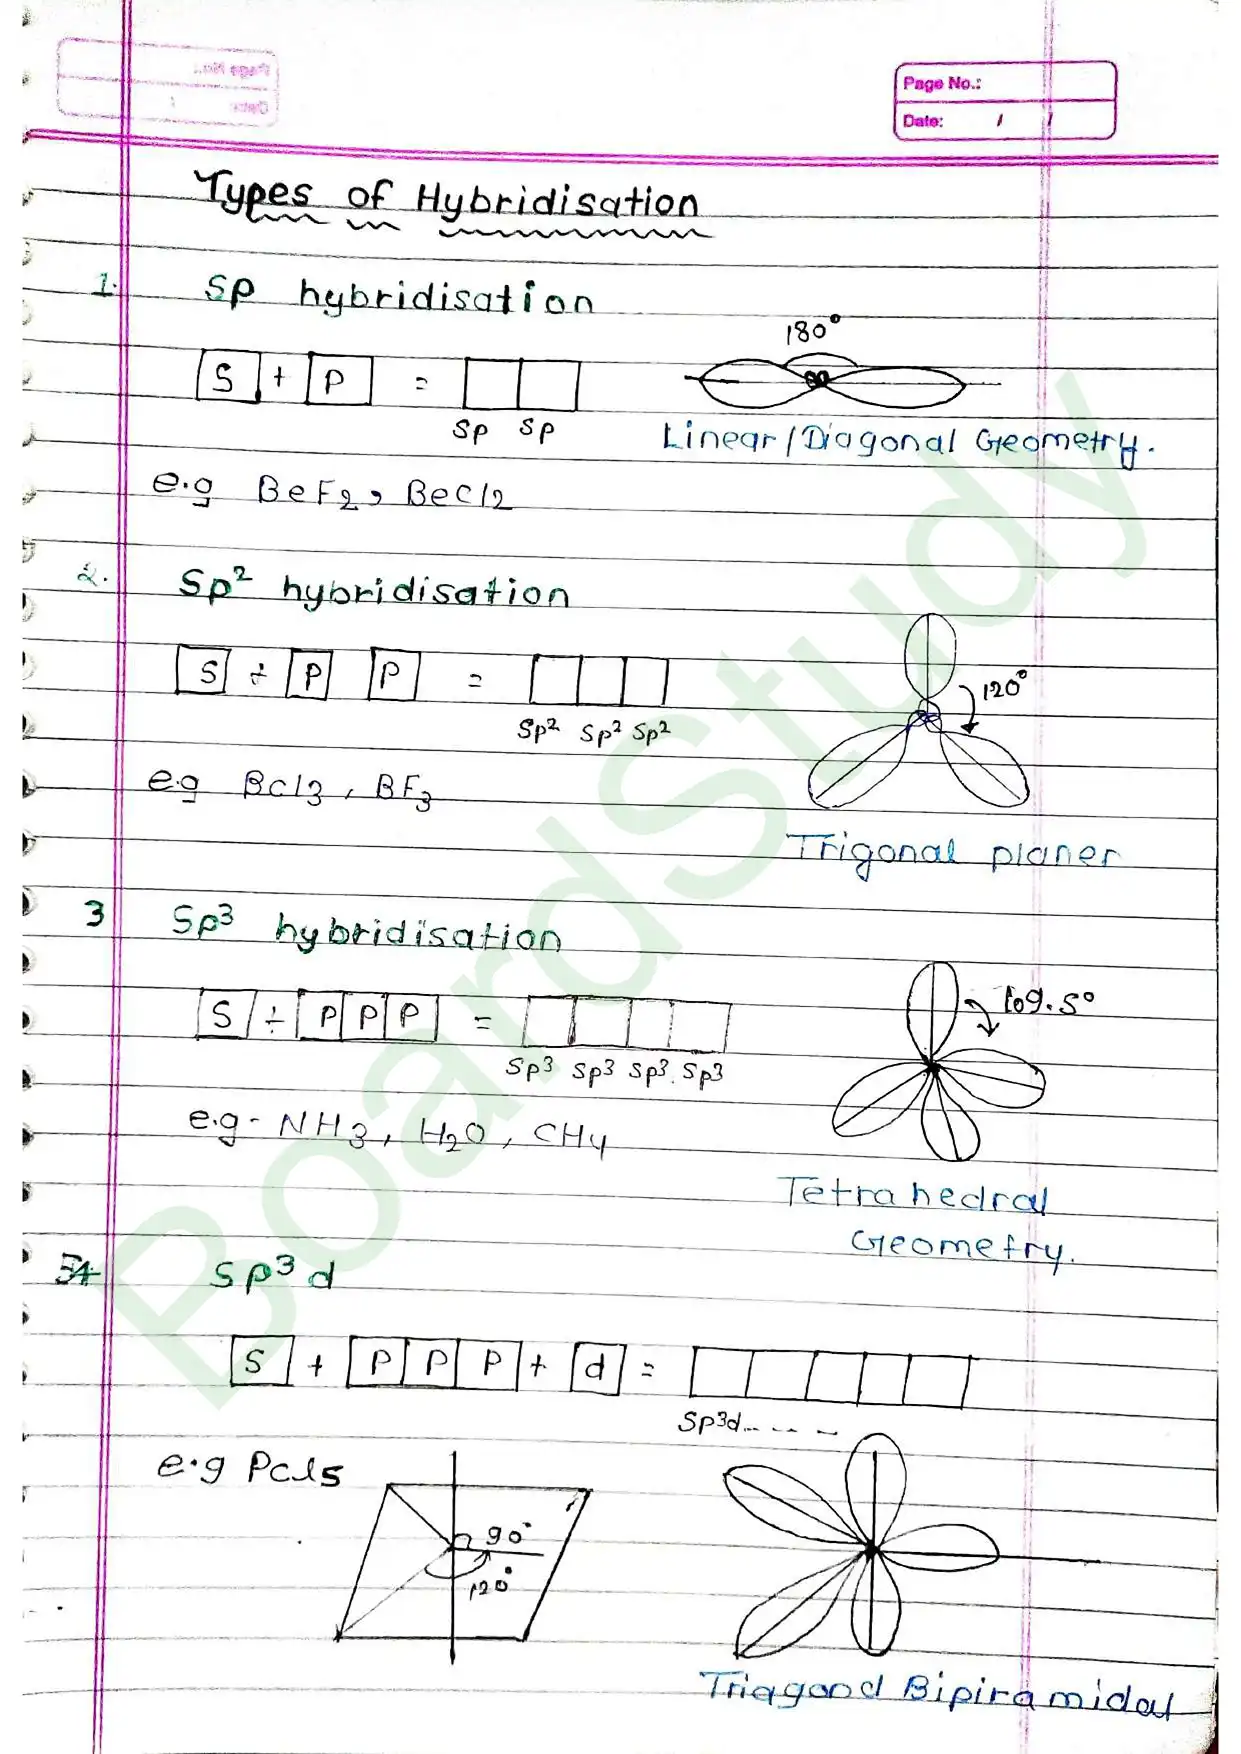 Page No.:
Date: / /
Types of Hybridisation
1. Sp hybridisation
180°
S + P =
Sp Sp
Linear/Diagonal Geometry.
e.g BeF2, BeCl2
2. Sp² hybridisation
S + P P =
120°
Sp² Sp² Sp²
e.g BCl3, BF3
Trigonal planer
3 Sp³ hybridisation
109.5°
S + P P P =
Sp³ Sp³ Sp³. Sp³
e.g- NH3, H2O, CH4
Tetrahedral
Geometry.
Sp³d
S + P P P + d =
Sp³d-----
e.g PCl5
90°
120°
Bipiramidal
BoardStudy